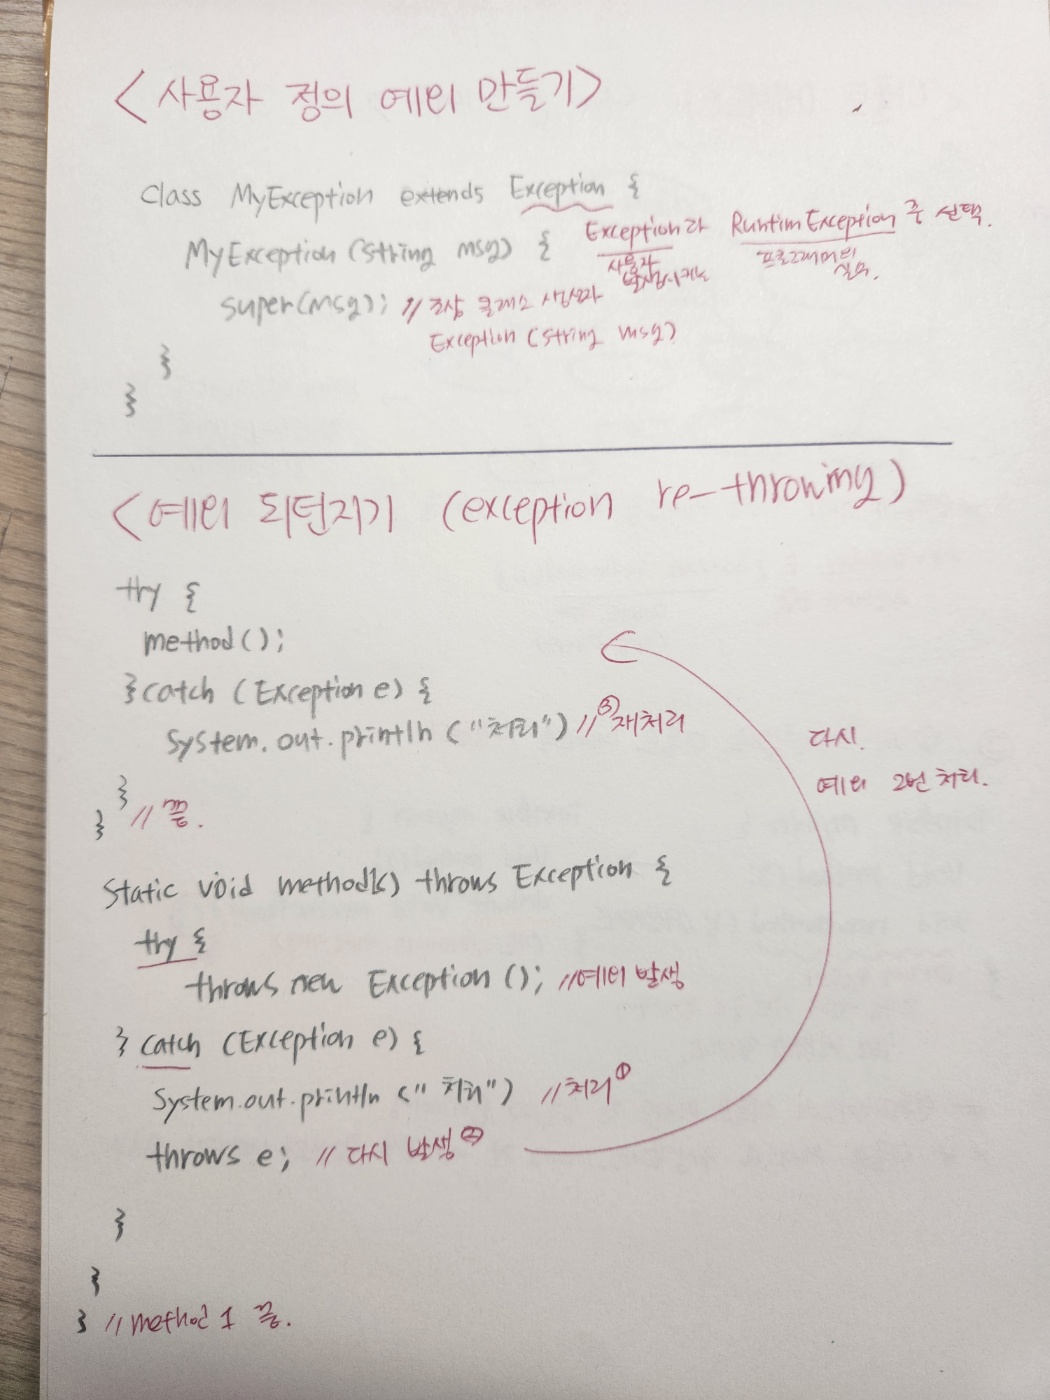 <사용자 정의 예외 만들기>
class MyException extends Exception {
MyException (String msg) { Exception과 RuntimException 중 선택.
사용자 발생시키는 프로그래머의 실수.
super(msg); // 조상 클래스 생성자
Exception (String msg)
}
}
<예외 되던지기 (exception re-throwing)
try {
method();
}catch (Exception e) {
System.out.println ("처리") // ③재처리
}
} // 끝.
다시.
예외 2번 처리.
Static void method1() throws Exception {
try {
throws new Exception (); //예외 발생
} catch (Exception e) {
System.out.println ("처리") //처리①
throws e; // 다시 발생②
}
}
} // method 1 끝.